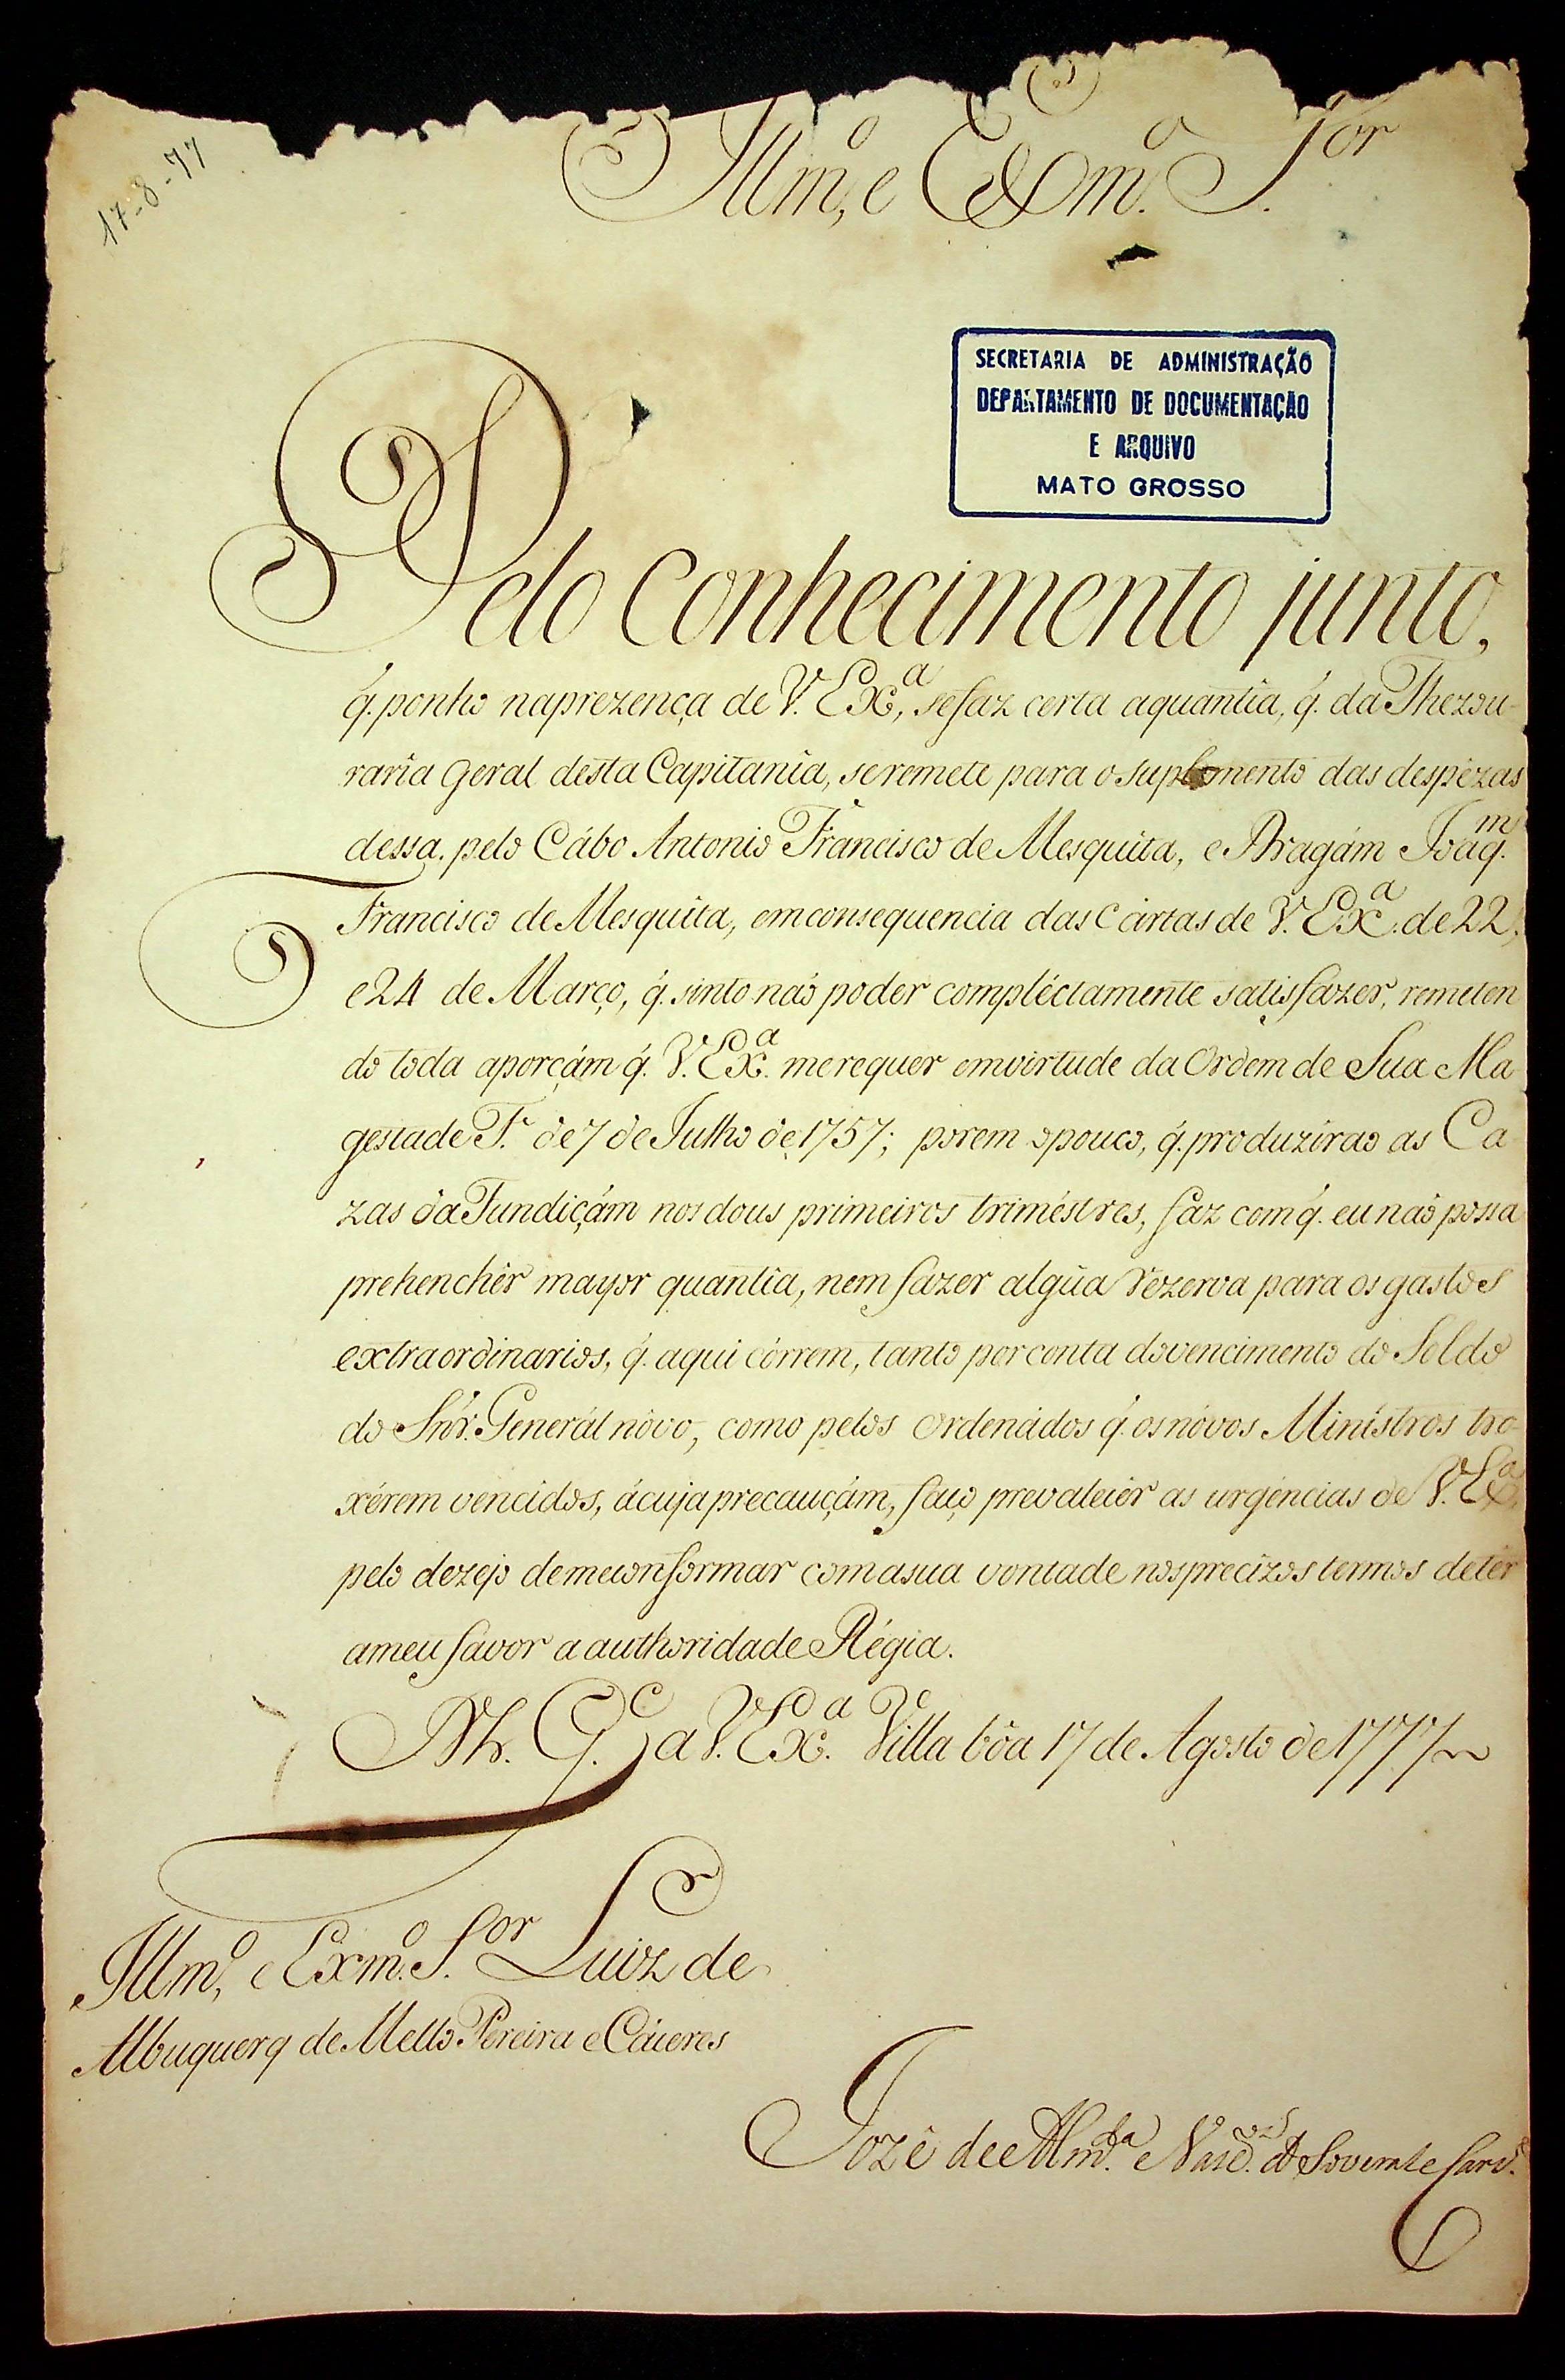 17-8-77
Illm.º, e Exm.º S.or
SECRETARIA DE ADMINISTRAÇÃO
DEPARTAMENTO DE DOCUMENTAÇÃO
E ARQUIVO
MATO GROSSO
Pelo conhecimento junto,
q́. ponho naprezença de V. Ex.ª, sefaz certa aquantia, q́. da Thezou-
raria Geral desta Capitania, seremete para o suplemento das despèzas
dessa. pelo Cábo Antonio Francisco de Mesquita, e Dragám Joaq.m
Francisco de Mesquita, emconsequencia das Cartas de V. Ex.ª de 22,
e 24 de Março, q́. sinto naõ poder compléctamente satisfazer, remeten
do toda aporçám q́. V. Ex.ª merequer emvirtude da Ordem de Sua Ma
gestade F. de 7 de Julho de 1757; porem opouco, q́. produziraõ as Ca
zas da Fundiçám nos dous primeiros triméstres, faz com q́. eu naõ possa
prehenchêr mayor quantia, nem fazer algũa rezerva para os gastos
extraordinarios, q́. aqui córrem, tanto por conta dovencimento do Soldo
do Snór. Generál nôvo, como pelos ordenádos q́. os nóvos Ministros tro-
xérem vencidos, ácuja precauçám, faço prevalecêr as urgéncias de V. Ex.ª,
pelo dezejo de meconformar com asua vontade nosprecizos termos detêr
ameu favor a authoridade Régia.
D.s G.e a V. Ex.ª Villa bôa 17 de Agosto de 1777
Illm.º, e Exm.º S.or Luiz de
Albuquerq de Mello Pereira e Cáceres
Jozê de Alm.da e Vasc.os de Soveral e Carv.